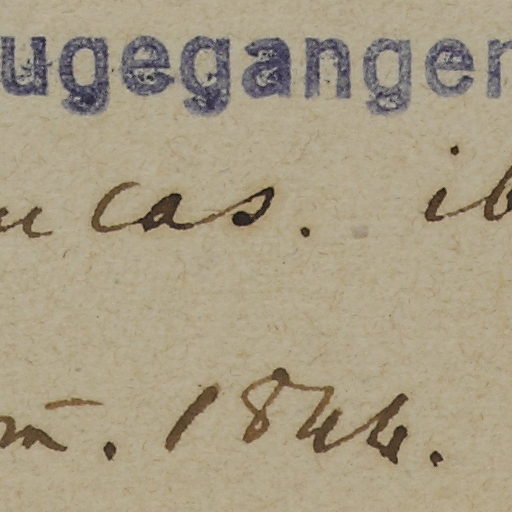 ugegangen
ucas. ib
m̄. 1846.